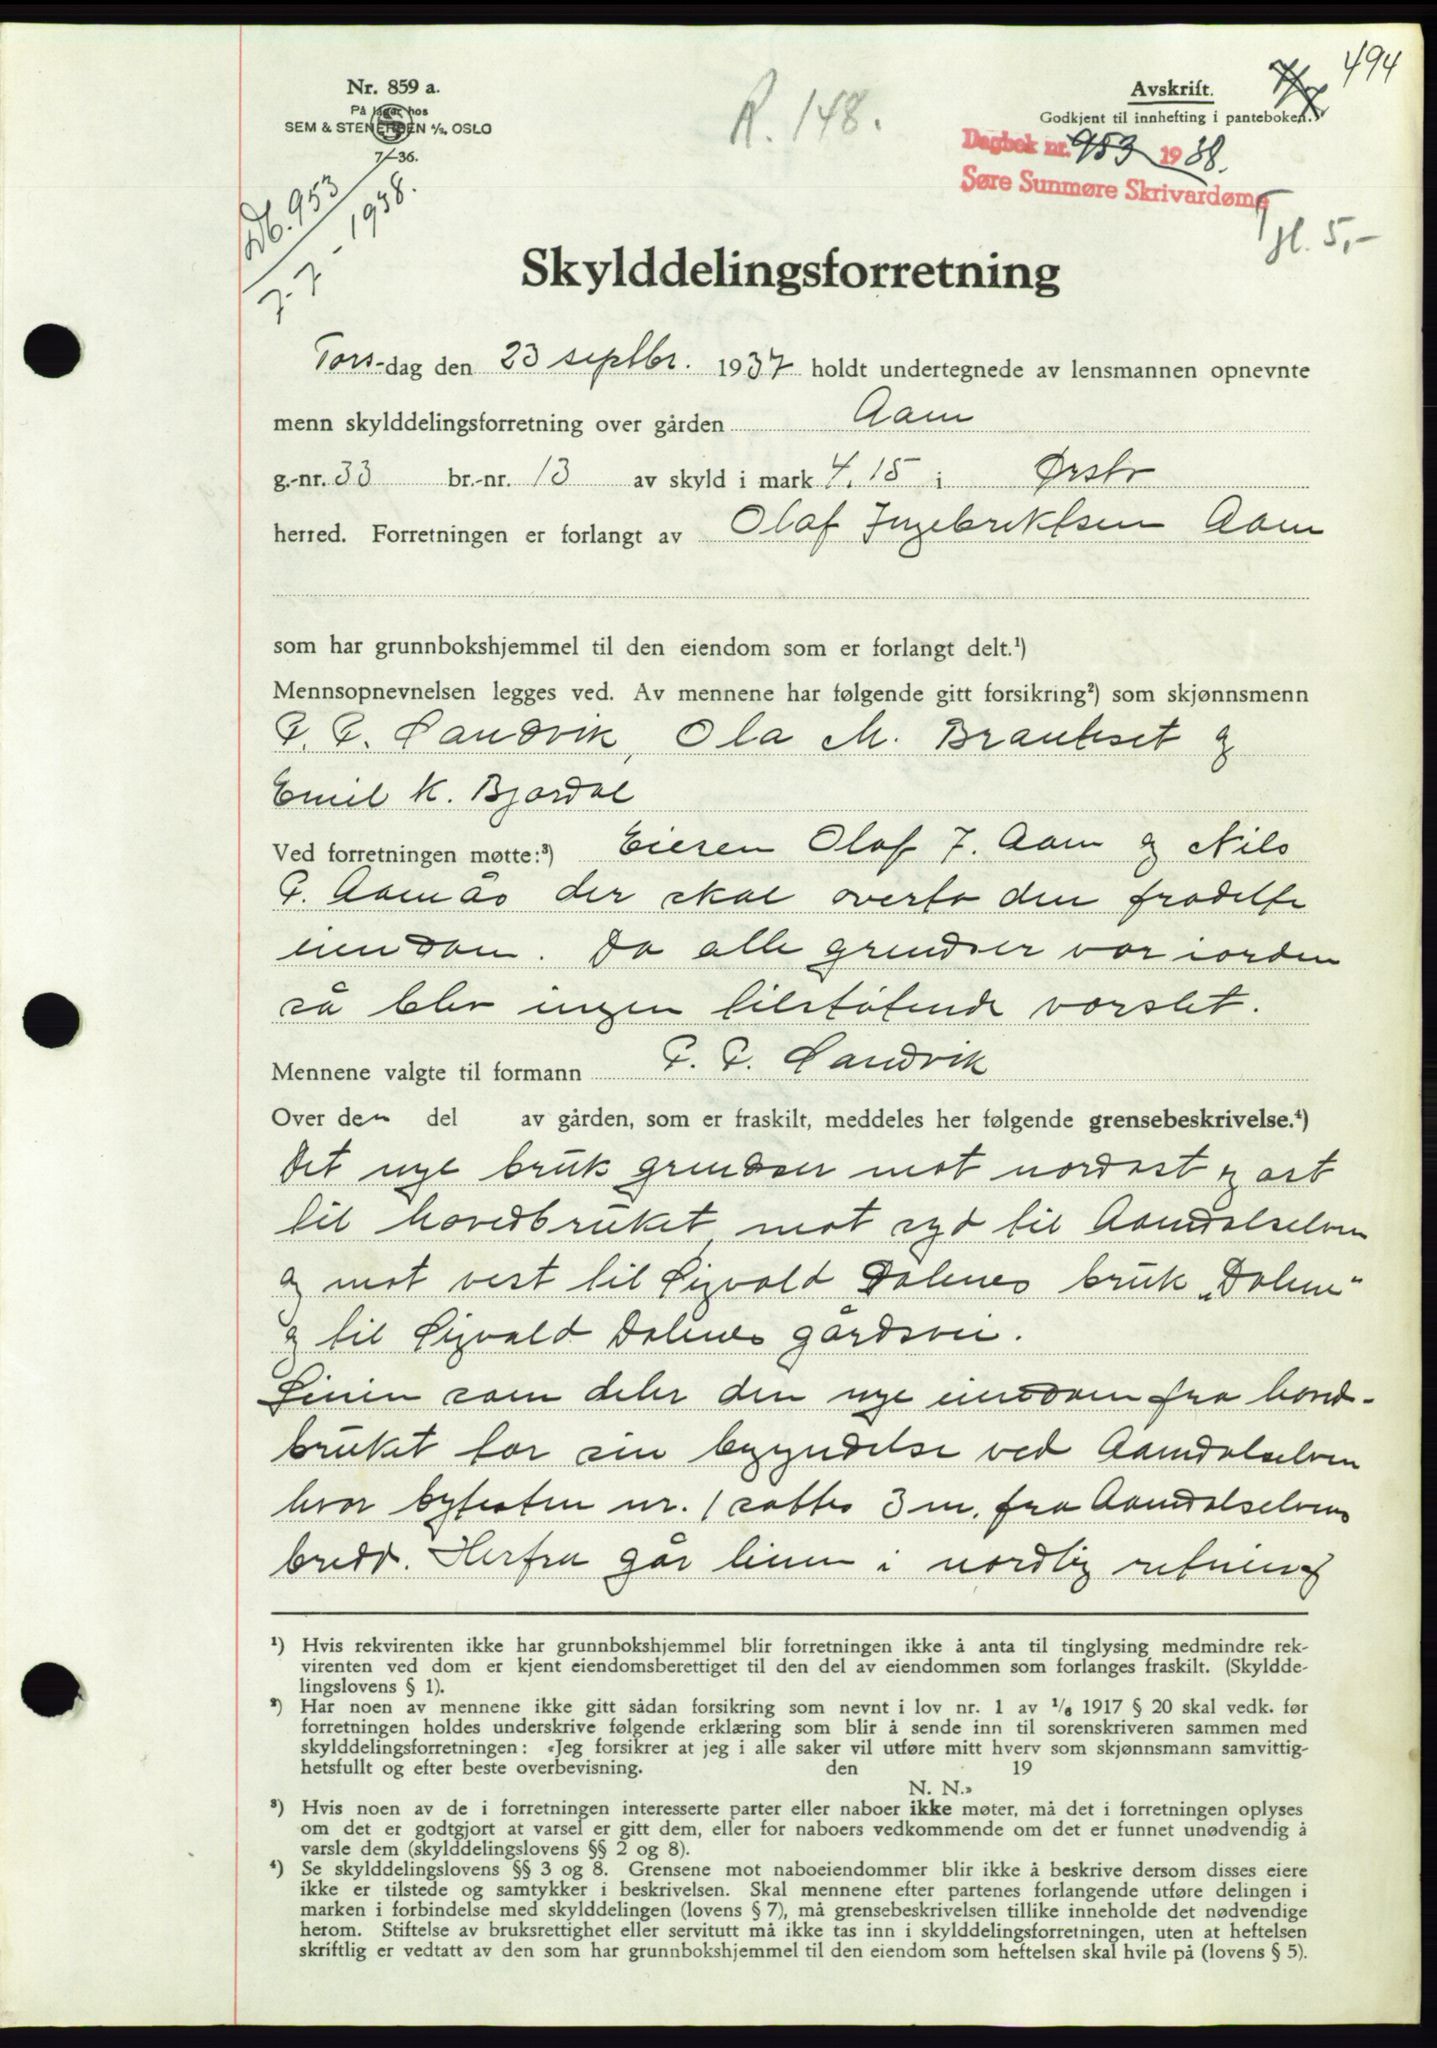 494
Nr. 859 a.
På lager hos
SEM & STENERSEN A/S, OSLO
7/-36.
R. 148.
Avskrift.
Godkjent til innhefting i panteboken.
7/7
Dagbok nr. 953 1938.
Søre Sunmøre Skrivardøme
gl. 5,-
Db. 953
7-7-1938.
Skylddelingsforretning
Torsdag den 23 septbr. 1937 holdt undertegnede av lensmannen opnevnte
menn skylddelingsforretning over gården Aam
g.-nr. 33 br.-nr. 13 av skyld i mark 4,15 i Ørsta
herred. Forretningen er forlangt av Olaf Ingebriktsen Aam
som har grunnbokshjemmel til den eiendom som er forlangt delt.¹)
Mennsopnevnelsen legges ved. Av mennene har følgende gitt forsikring²) som skjønnsmenn
P. P. Sandvik, Ola M. Brauteset og
Emil K. Bjørdal
Ved forretningen møtte:³) Eieren Olaf I. Aam og Nils
P. Aamås der skal overta den fradelte
eiendom. Da alle grendser var iorden
så blev ingen tilstøtende varslet.
Mennene valgte til formann P. P. Sandvik
Over den del av gården, som er fraskilt, meddeles her følgende grensebeskrivelse.⁴)
Det nye bruk grendser mot nordøst og øst
til hovedbruket, mot syd til Aamdalselven
og mot vest til Sigvald Dalenes bruk „Dalene"
og til Sigvald Dalenes gårdsvei.
Linin som deler den nye eiendom fra hoved-
bruket tar sin begyndelse ved Aamdalselven
hvor bytesten nr. 1 sattes 3 m. fra Aamdalselvens
bredd. Herfra går linen i nordlig retning
¹) Hvis rekvirenten ikke har grunnbokshjemmel blir forretningen ikke å anta til tinglysing medmindre rek-
virenten ved dom er kjent eiendomsberettiget til den del av eiendommen som forlanges fraskilt. (Skyldde-
lingslovens § 1).
²) Har noen av mennene ikke gitt sådan forsikring som nevnt i lov nr. 1 av ¹/₆ 1917 § 20 skal vedk. før
forretningen holdes underskrive følgende erklæring som blir å sende inn til sorenskriveren sammen med
skylddelingsforretningen: «Jeg forsikrer at jeg i alle saker vil utføre mitt hverv som skjønnsmann samvittig-
hetsfullt og efter beste overbevisning. den 19
N. N.»
³) Hvis noen av de i forretningen interesserte parter eller naboer ikke møter, må det i forretningen oplyses
om det er godtgjort at varsel er gitt dem, eller for naboers vedkommende om det er funnet unødvendig å
varsle dem (skylddelingslovens §§ 2 og 8).
⁴) Se skylddelingslovens §§ 3 og 8. Grensene mot naboeiendommer blir ikke å beskrive dersom disses eiere
ikke er tilstede og samtykker i beskrivelsen. Skal mennene efter partenes forlangende utføre delingen i
marken i forbindelse med skylddelingen (lovens § 7), må grensebeskrivelsen tillike inneholde det nødvendige
herom. Stiftelse av bruksrettighet eller servitutt må ikke tas inn i skylddelingsforretningen, uten at heftelsen
skriftlig er vedtatt av den som har grunnbokshjemmel til den eiendom som heftelsen skal hvile på (lovens § 5).